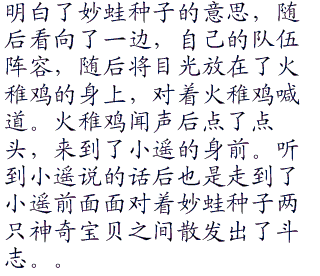 明白了妙蛙种子的意思，随
后看向了一边，自己的队伍
阵容，随后将目光放在了火
稚鸡的身上，对着火稚鸡喊
道。火稚鸡闻声后点了点
头，来到了小遥的身前。听
到小遥说的话后也是走到了
小遥前面面对着妙蛙种子两
只神奇宝贝之间散发出了斗
志。。